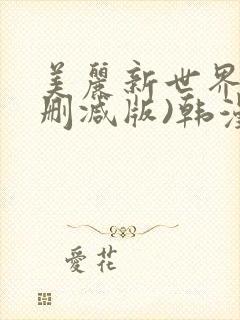 美麗新世界
删减版)韩漫
愛花